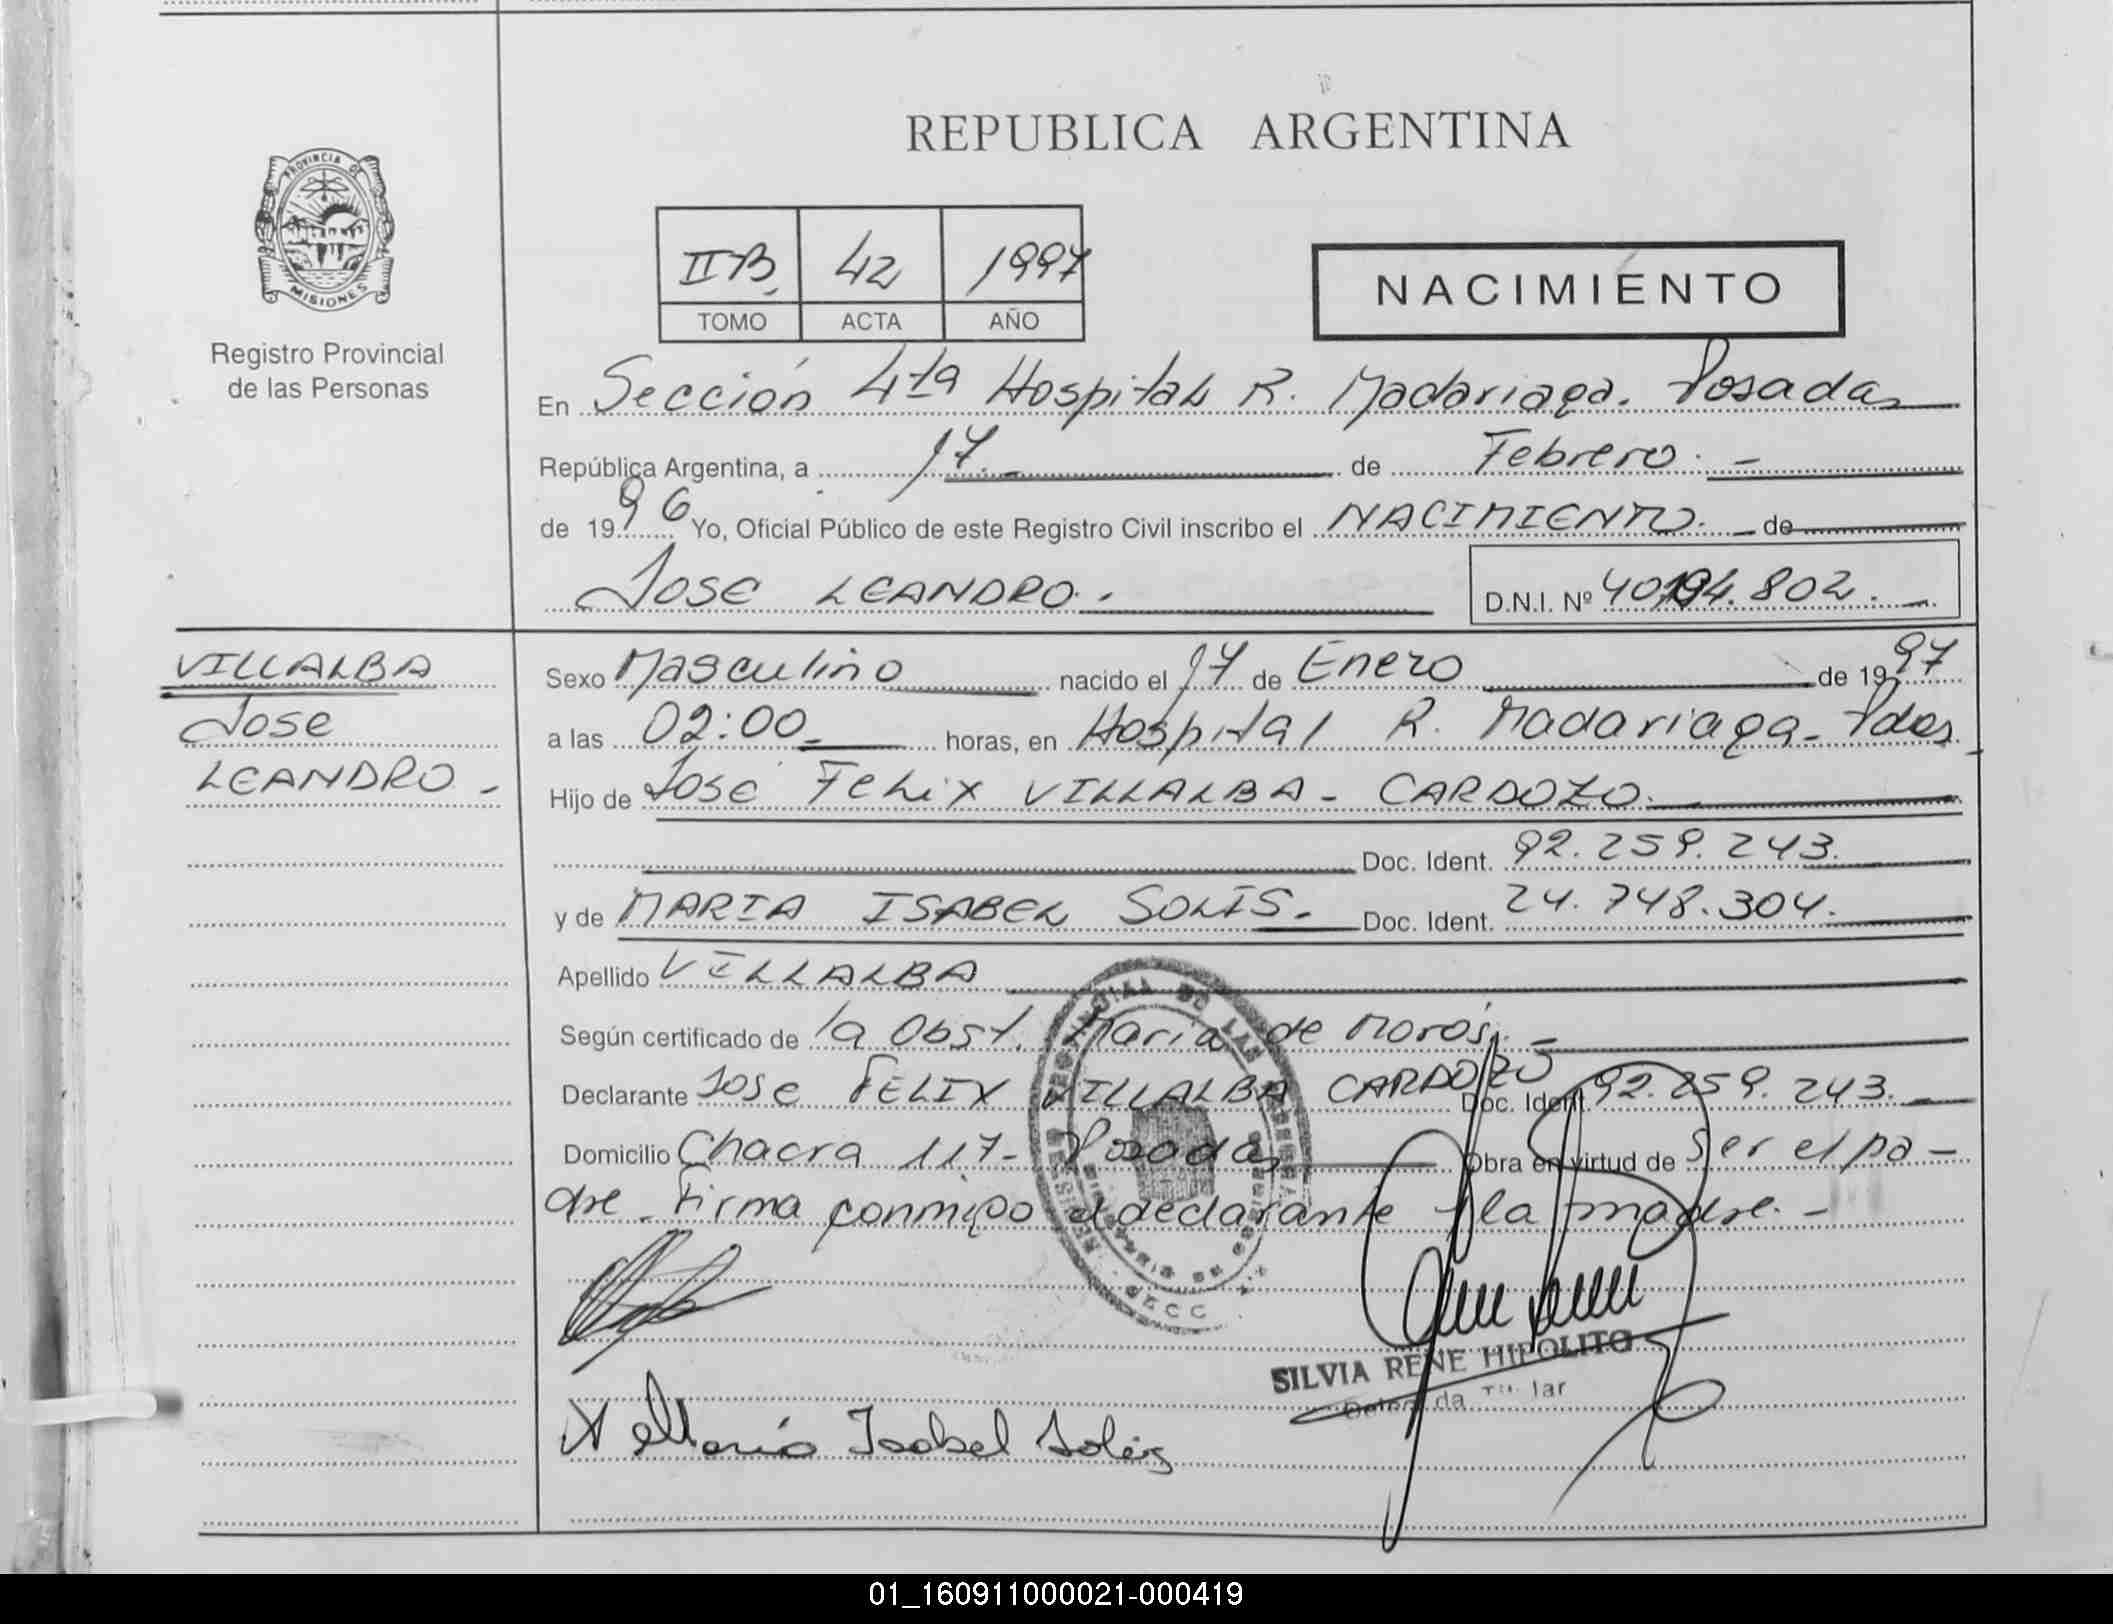 REPUBLICA ARGENTINA
PROVINCIA DE
MISIONES
Registro Provincial
de las Personas
II B. 42 1997
TOMO ACTA AÑO
NACIMIENTO
En Sección 4ta Hospital R. Madariaga. Posadas
República Argentina, a 17. - de Febrero. -
de 1996 Yo, Oficial Público de este Registro Civil inscribo el NACIMIENTO. de
Jose LEANDRO. D.N.I. Nº 40.194.802. -
VILLALBA
Jose
LEANDRO -
Sexo Masculino nacido el 17 de Enero de 1997
a las 02:00 horas, en Hospital R. Madariaga - Pdas.
Hijo de José Felix VILLALBA - CARDOZO.
Doc. Ident. 92.259.243.
y de MARIA ISABEL SOLIS. Doc. Ident. 24.748.304.
Apellido VILLALBA
Según certificado de la Obst. Maria de Moros. -
Declarante Jose FELIX VILLALBA CARDOZO Doc. Ident. 92.259.243. -
Domicilio Chacra 117 - Posadas Obra en virtud de Ser el pa-
dre. Firma conmigo el declarante y la madre. -
SILVIA RENE HIPOLITO
María Isabel Solis
01_160911000021-000419